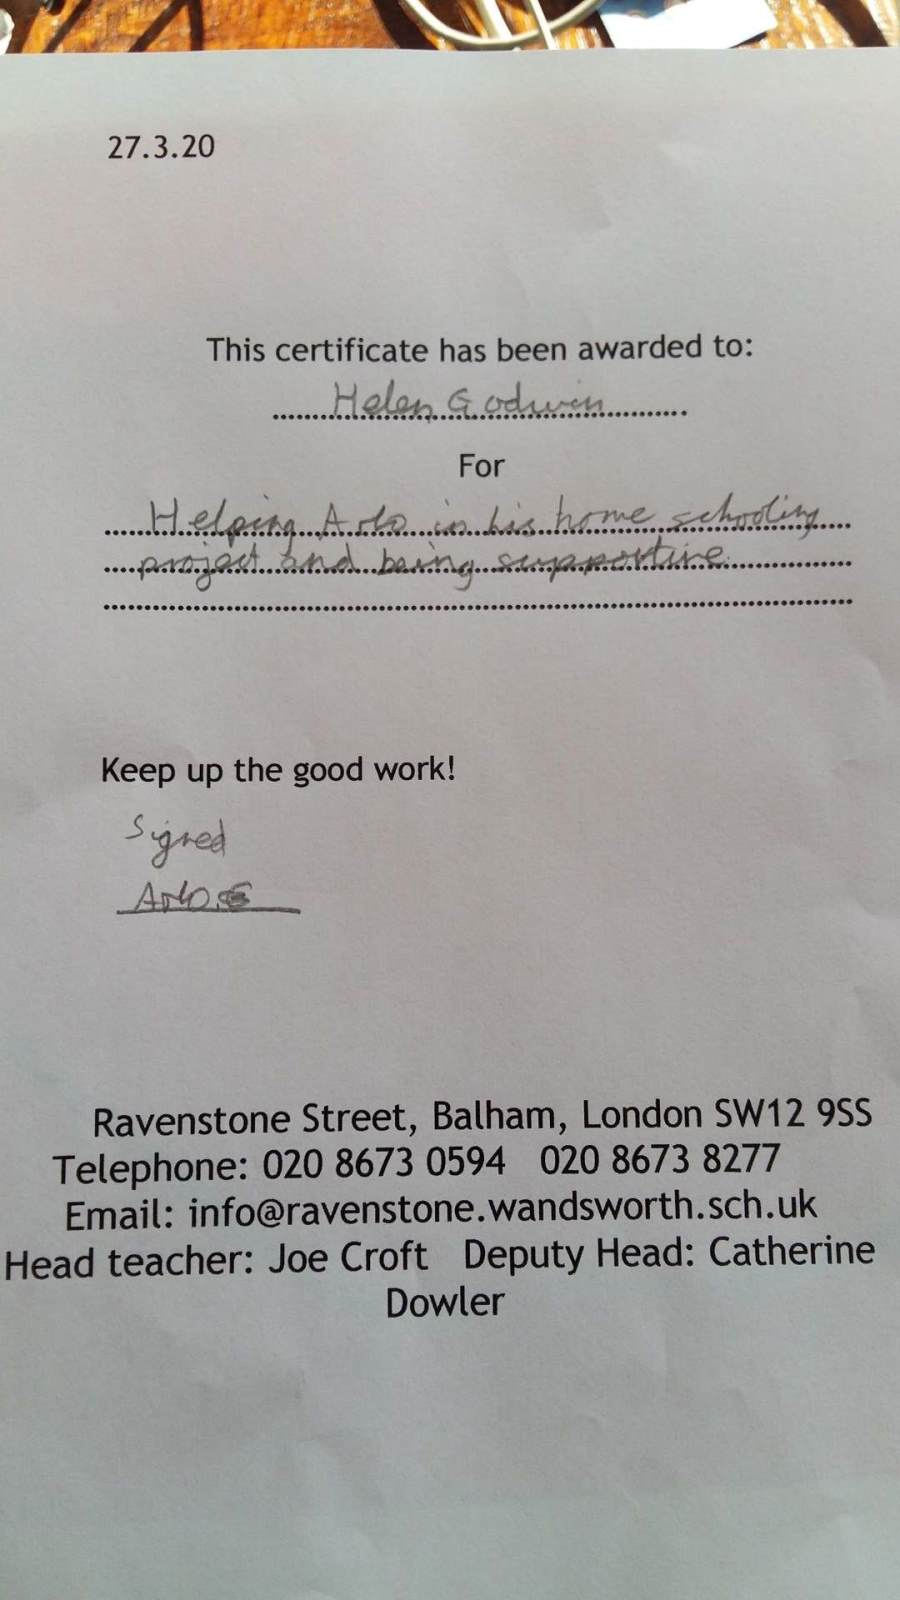 27.3.20
This certificate has been awarded to:
Helen Godwin
For
Helping Arlo in his home schooling
project and being supportive.
Keep up the good work!
Signed
Arlo.G
Ravenstone Street, Balham, London SW12 9SS
Telephone: 020 8673 0594 020 8673 8277
Email: info@ravenstone.wandsworth.sch.uk
Head teacher: Joe Croft Deputy Head: Catherine
Dowler